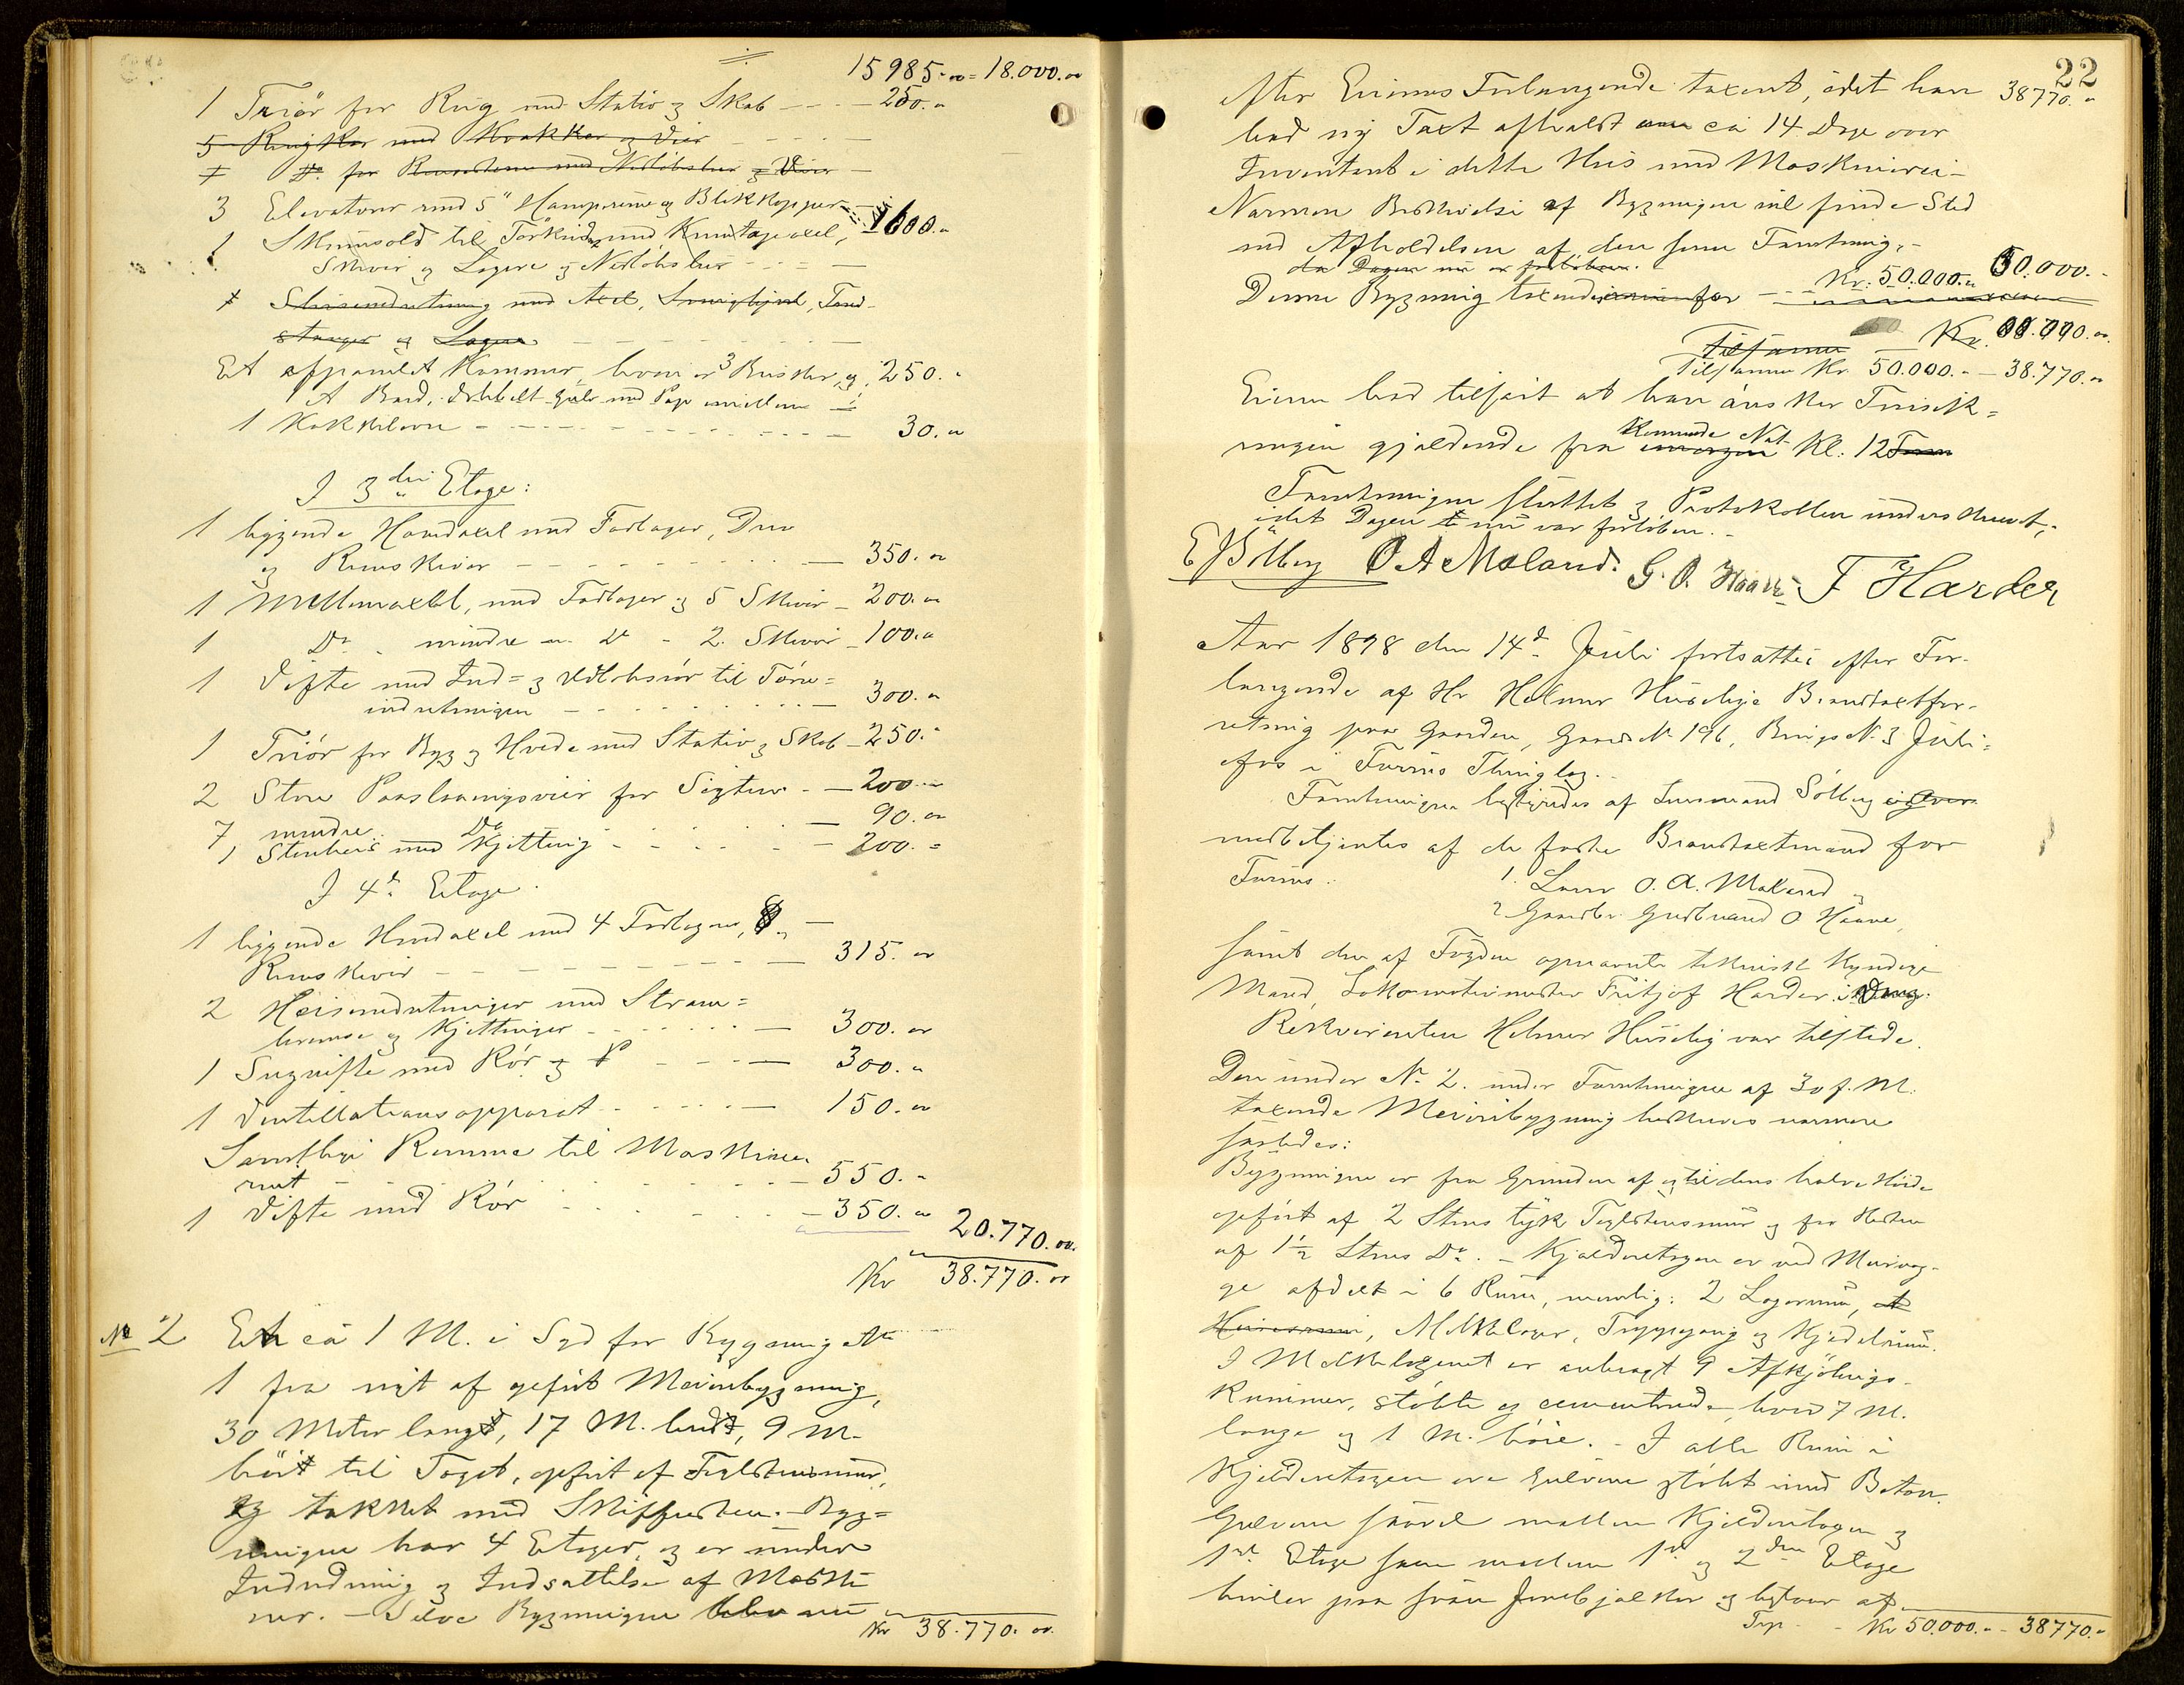 15985.00 = 18.000.00
1 Triör for Rug med Stativ og Skab - - - 250.00
5 Rugkar med Kvakker og Vier
1 Do. for med Nedløbsrør og Vier
3 Elevatorer med 5" Hampreme og Blikkopper
1600.00
1 Skumsold til med axel,
Skiver og Lagere og Nedløbsrør
1 med Axel, Tand-
stænger og Lagere
Et afpanelet Kammer, hvori er 3 Brisker og 250.00
1 Bord, dobbelt Gulv med Pap imellem
1 Kakkelovn - - - 30.00
I 3die Etage:
1 liggende Hovedaxel med Fodlager, Drev
og Remskiver - - - 350.00
1 Mellemaxel, med Fodlager og 5 Skiver - 200.00
1 Do. mindre - Do - 2 Skiver - 100.00
1 Vifte med Ind= og Udløbsrør til Tørre=
indretningen - - - 300.00
1 Triör for Byg og Hvede med Stativ og Skab - 250.00
2 Store for Sigter - 200.00
7 mindre Do - 90.00
1 Stenheis med Kjetting - 200.00
I 4de Etage.
1 liggende Hovedaxel med 4 Fodlagere,
Remskiver - - - 315.00
2 Heisindretninger med Stram=
bremse og Kjettinger - - - 300.00
1 Sugvifte med Rör og - - - 300.00
1 Ventillationsapparat - - - 150.00
Samtlige Remme til Maskine-
riet - - - 550.00
1 Vifte med Rör - - - 350.00
20.770.00
Kr 38.770.00
No 2 Et ca 1 M. i Syd for Bygning No
1 fra nyt af opfört Meieribygning,
30 Meter langt, 17 M. bredt, 9 M.
höit til Taget, opfört af Teglstensmur,
og takket med Skiffersten. Byg=
ningen har 4 Etager, og er under
Indredning og Indsættelse af Maski
ner. - Selve Bygningen blev nu
Kr 38.770.00
22
efter Eierens Forlangende taxeret, idet han 38770.00
bad ny Taxt afholdt om ca 14 Dage over
Inventaret i dette Hus med Maskineri -
Nærmere Beskrivelse af Bygningen vil finde Sted
ved Afholdelsen af den senere Forretning,
da Dagen nu er forløben.
Denne Bygning taxeredes for - - Kr. 50.000.00 50.000.-
Tilsammen Kr.
Tilsammen Kr 50.000.- - 38.770.00
Eieren bad tilført at han ønsker Forsik=
ringen gjældende fra imorgen kommende Nat Kl. 12 Form
Forretningen sluttet og Protokollen underskrevet,
idet Dagen nu var forløben.
E Sölberg O. A Moland. G. O. Haave F Harder
Aar 1898 den 14de Juli fortsattes efter For-
langende af Hr Helmer Huselig Brandtaxtfor-
retning paa Gaarden, Gaards No 196, Brugs No 3 Juli-
fos i Furnes Thinglag.
Forretningen bestyredes af Lensmand Sölberg og
medbetjentes af de faste Brandtaxtmænd for
Furnes:
1. Lærer O. A. Moland og
2 Gaardbr. Gudbrand O Haave,
samt den af Fogden opnævnte teknisk kyndige
Mand, Lokomotivmester Fritjof Harder
Rekvirenten Helmer Huselig var tilstede.
Den under No 2. under Forretningen af 30 f. M.
taxerede Meieribygning beskrives nærmere
saaledes:
Bygningen er fra Grunden af og til dens halve Høide
opfört af 2 Stens tyk Teglstensmur og for Resten
af 1½ Stens Do. - Kjælderetagen er ved Murvæg-
ge afdelt i 6 Rum, nemlig: 2 Lagerrum, et
Heiserum, Melkelager, Trappegang og Kjedelrum.
I Melkelageret er anbragt 9 Afkjölings-
kummer, stöbte og cementerede, hver 7 M.
lange og 1 M. høie. - I alle Rum i
Kjælderetagen ere Gulvene stöbt med Beton.
Gulvene saavel mellem Kjælderetagen og
1ste Etage som mellem 1ste og 2den Etage
hviler paa svære Jernbjælker og bestaar af
Trsp - Kr 50.000.- - 38770.-